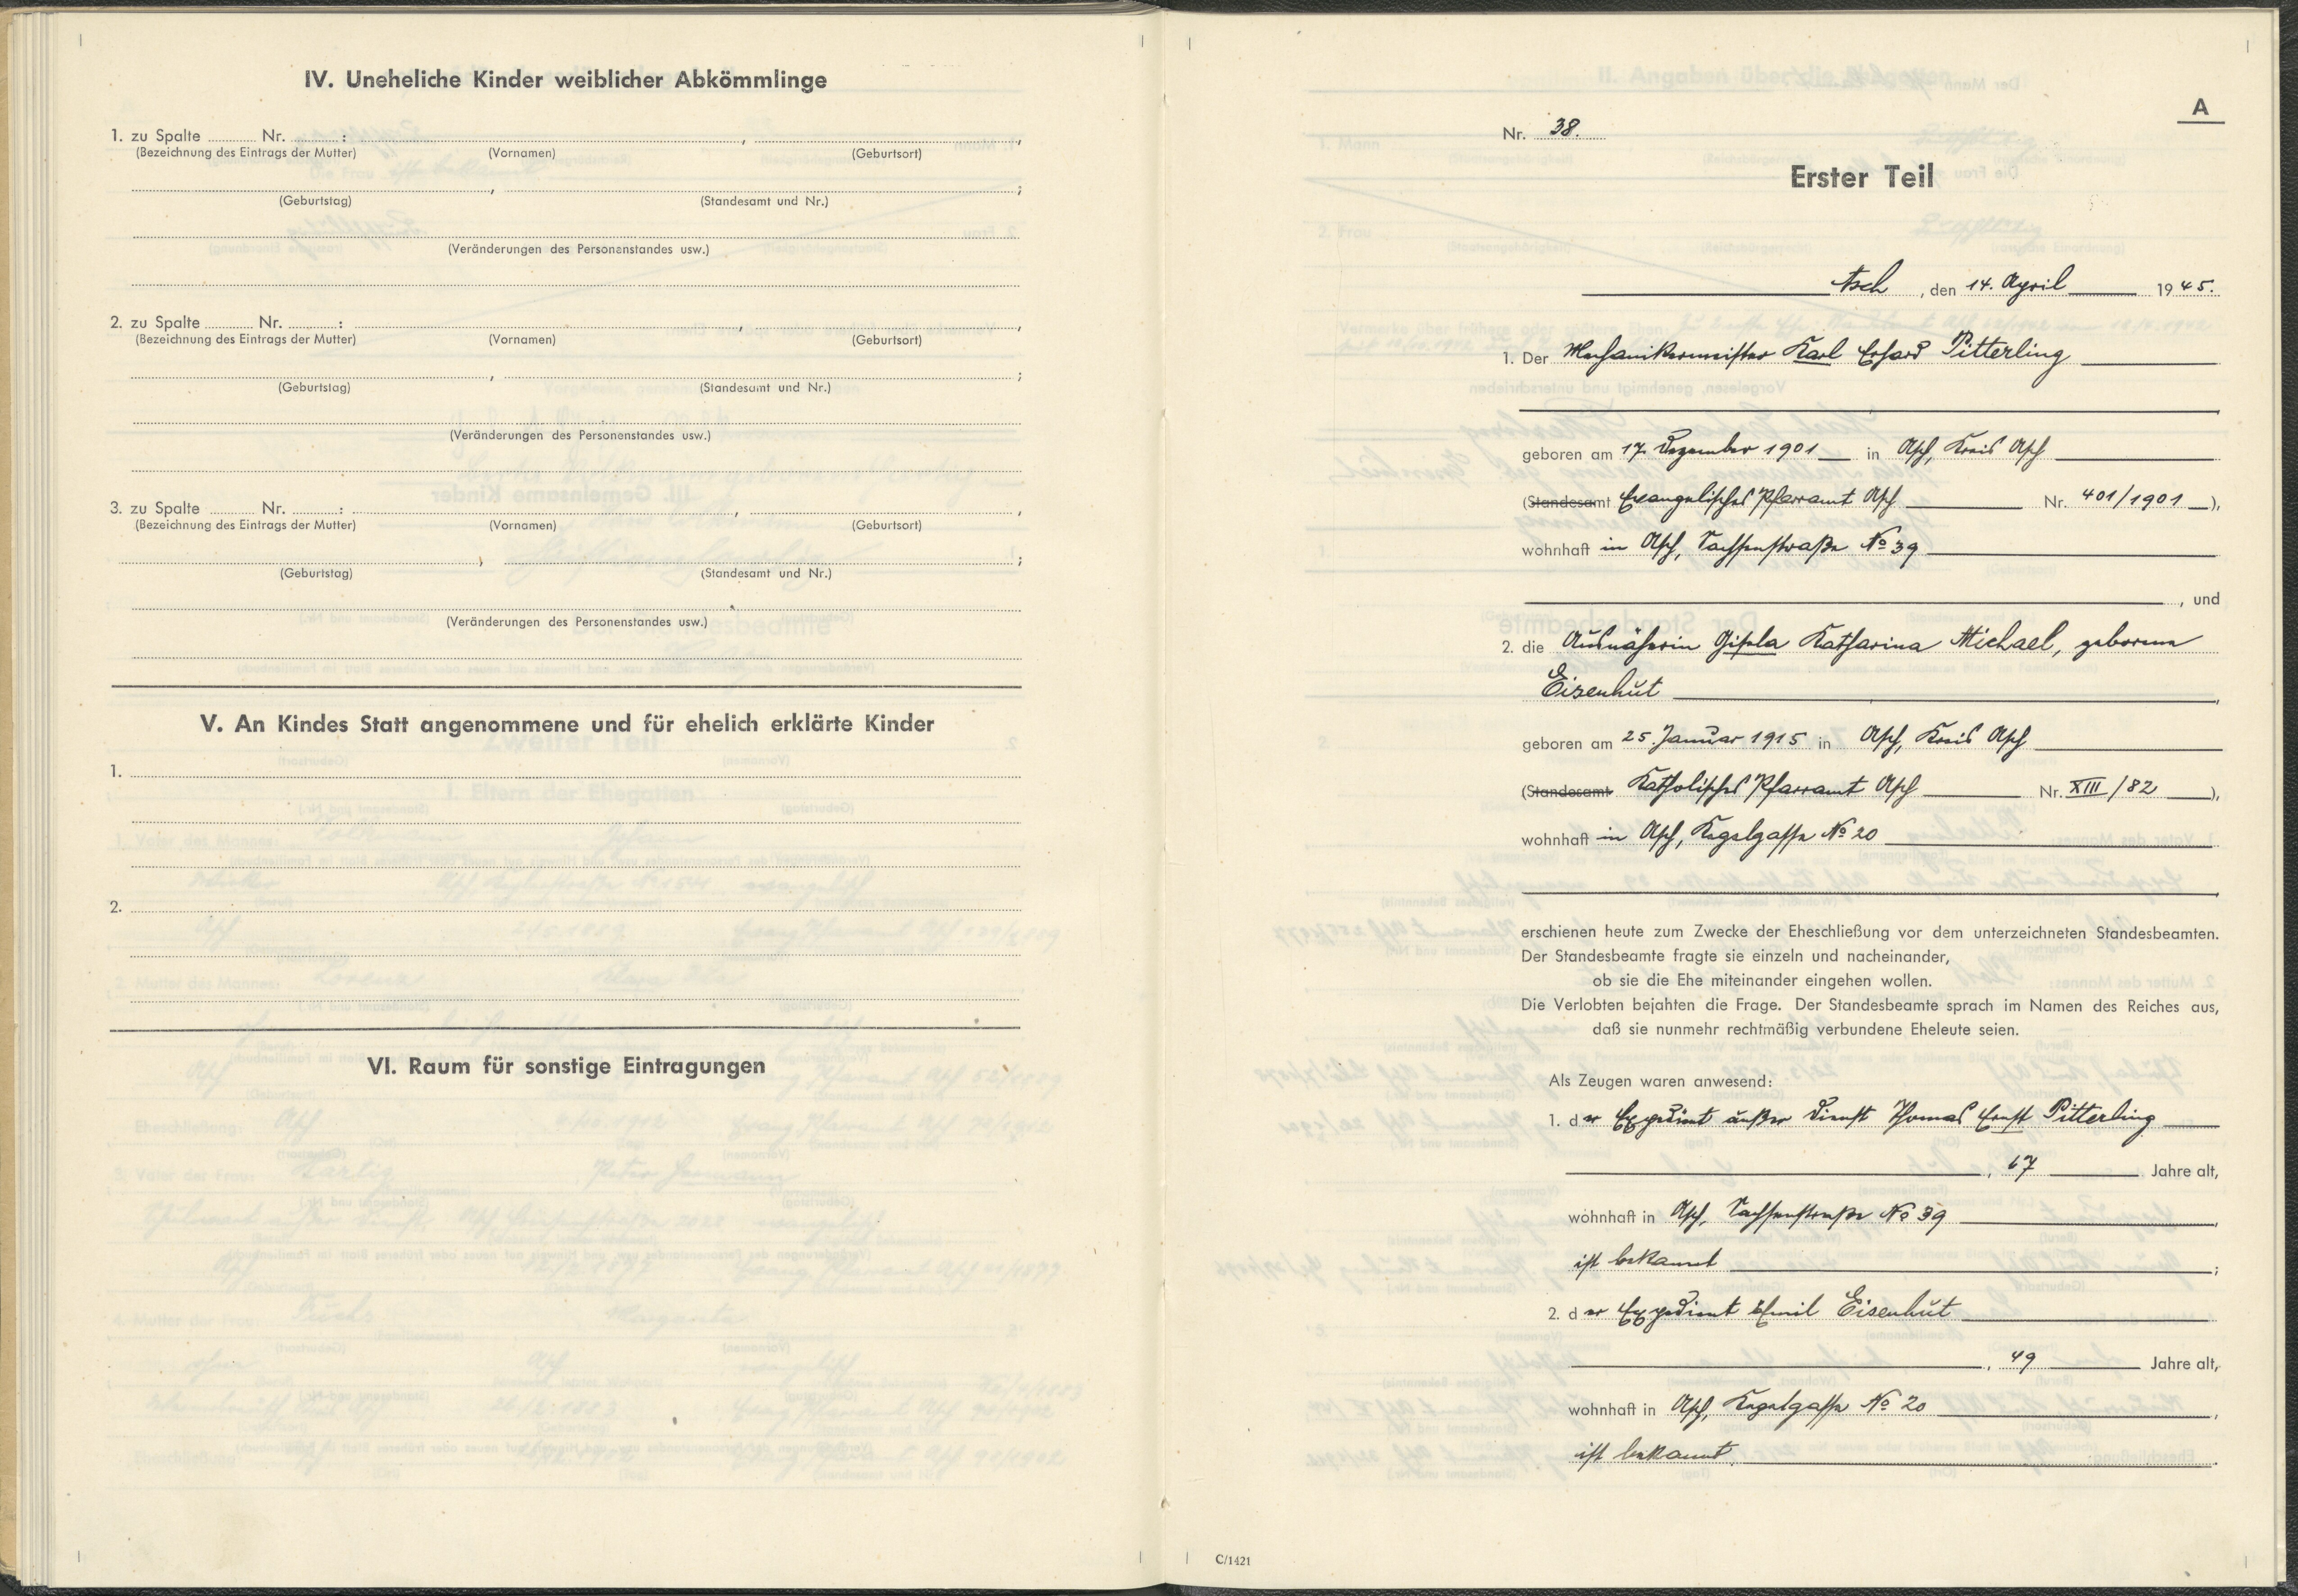 IV. Uneheliche Kinder weiblicher Abkömmlinge
1. zu Spalte ........ Nr. ........ :
(Bezeichnung des Eintrags der Mutter) (Vornamen) (Geburtsort)
(Geburtstag) (Standesamt und Nr.)
(Veränderungen des Personenstandes usw.)
2. zu Spalte ........ Nr. ........ :
(Bezeichnung des Eintrags der Mutter) (Vornamen) (Geburtsort)
(Geburtstag) (Standesamt und Nr.)
(Veränderungen des Personenstandes usw.)
3. zu Spalte ........ Nr. ........ :
(Bezeichnung des Eintrags der Mutter) (Vornamen) (Geburtsort)
(Geburtstag) (Standesamt und Nr.)
(Veränderungen des Personenstandes usw.)
V. An Kindes Statt angenommene und für ehelich erklärte Kinder
1.
2.
VI. Raum für sonstige Eintragungen
A
Nr. 38.
Erster Teil
Asch, den 14. April 1945.
1. Der Mechanikermeister Karl Erhard Pitterling
geboren am 17. Dezember 1901 in Asch, Kreis Asch
(Standesamt Evangelisches Pfarramt Asch Nr. 401/1901),
wohnhaft in Asch, Sachsenstraße No 39
, und
2. die Ausnäherin Gisela Katharina Michael, geborene
Eisenhut
geboren am 25. Januar 1915 in Asch, Kreis Asch
(Standesamt Katholisches Pfarramt Asch Nr. XIII/82),
wohnhaft in Asch, Kegelgasse No 20
erschienen heute zum Zwecke der Eheschließung vor dem unterzeichneten Standesbeamten.
Der Standesbeamte fragte sie einzeln und nacheinander,
ob sie die Ehe miteinander eingehen wollen.
Die Verlobten bejahten die Frage. Der Standesbeamte sprach im Namen des Reiches aus,
daß sie nunmehr rechtmäßig verbundene Eheleute seien.
Als Zeugen waren anwesend:
1. der Expedient außer Dienst Thomas Ernst Pitterling
, 67 Jahre alt,
wohnhaft in Asch, Sachsenstraße No 39
ist bekannt ;
2. der Expedient Emil Eisenhut
, 49 Jahre alt,
wohnhaft in Asch, Kegelgasse No 20 ,
ist bekannt.
C/1421